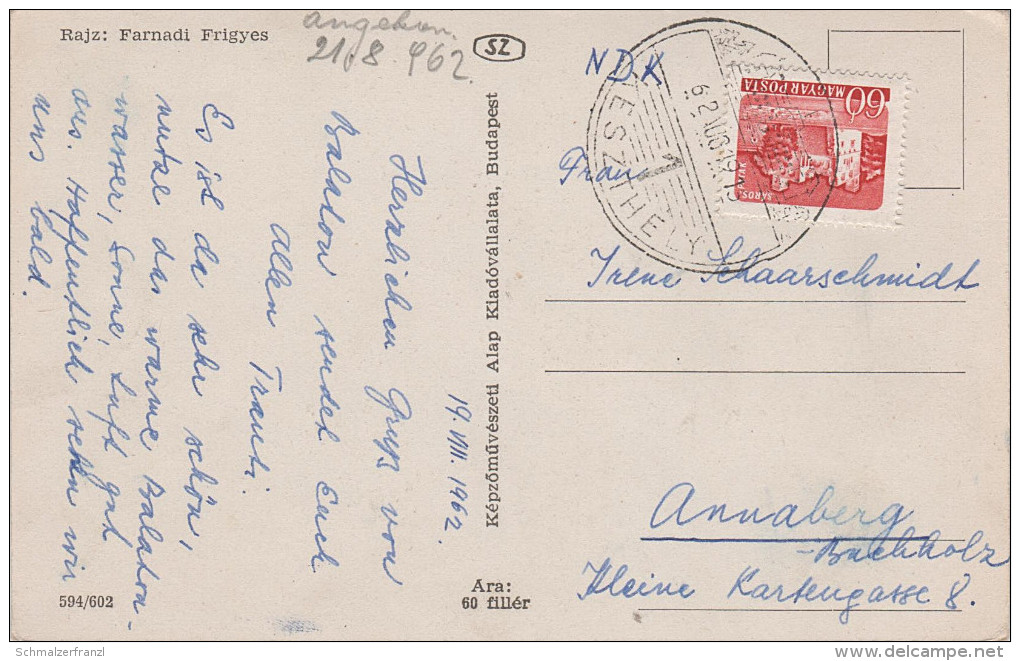 Rajz: Farnadi Frigyes
angekom.
21.8.962.
SZ
19.VIII.1962
Herzlichen Gruß von
Balaton sendet Euch
allen Trauti.
Es ist da sehr schön,
nutze das warme Balaton-
wasser, Sonne, Luft gut
aus. Hoffentlich sehen wir
uns bald.
594/602
Ára:
60 fillér
Képzőművészeti Alap Kiadóvállalata, Budapest
NDK
KESZTHELY
1
62 AUG 19
MAGYAR POSTA
60
Frau
Irene Schaarschmidt
Annaberg
-Buchholz
Kleine Kartengasse 8.
© Schmalzerfranzl
delcampe.net